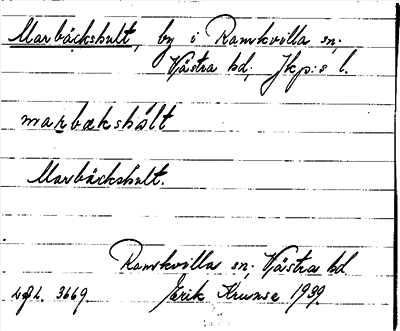 Marbäckshult, by i Ramkvilla sn;
Västra hd, Jkp:s l.
marbækshålt
Marbäckshult.
Ramkvilla sn; Västra hd
3669. Erik Krunse 1939.